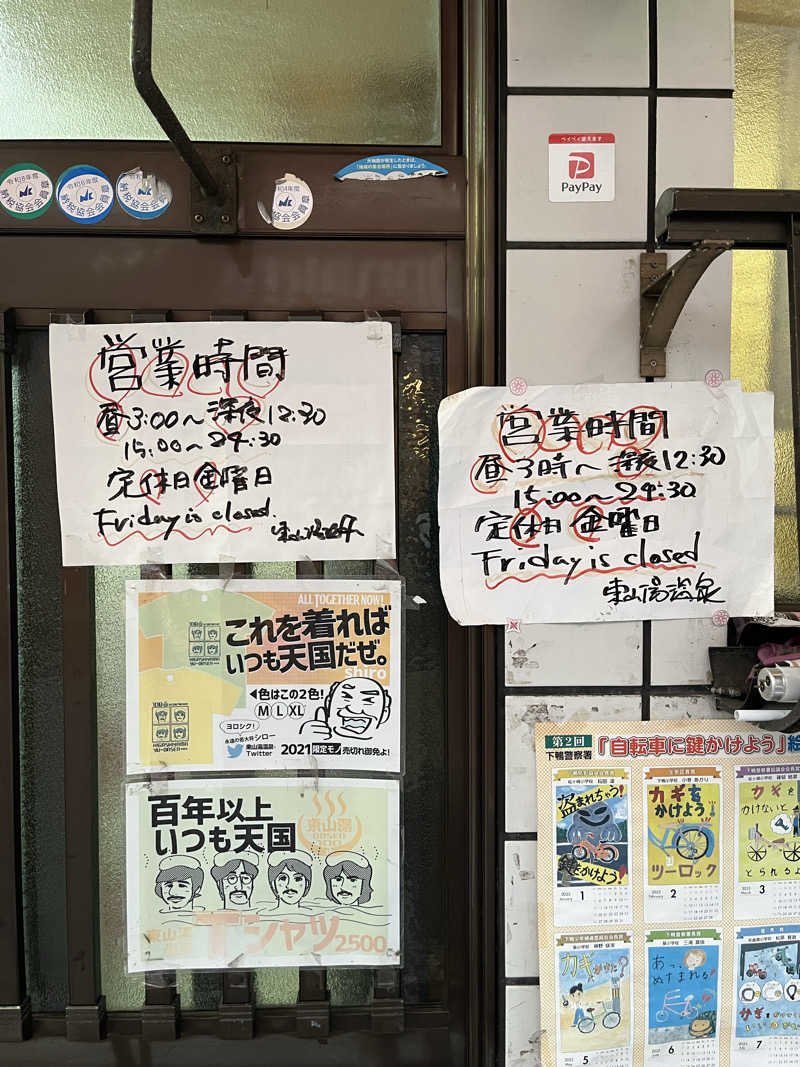 令和8年度
納税協会会員章
令和6年度
納税協会会員章
令和
納税協会会員章
納税協会
ペイペイ使えます
PayPay
営業時間
昼3:00〜深夜12:30
15:00〜24:30
定休日金曜日
Friday is closed.
営業時間
昼3時〜深夜12:30
15:00〜24:30
定休日 金曜日
Friday is closed
東山湯温泉
ALL TOGETHER NOW!
これを着れば
いつも天国だぜ。
shiro
◀色はこの2色!
M L XL
ヨロシク!
永遠の若大将シロー
東山湯温泉
Twitter
2021限定モノ売切れ御免よ!
百年以上
いつも天国
東山湯
Tシャツ
2500
第2回
下鴨警察署
「自転車に鍵かけよう」
盗まれちゃう!
鍵をかけよう!
1
カギを
かけよう!
ツーロック
2
カギを
かけないと
とられるよ
3
カギかけた?
5
あっ、
ぬすまれる!
6
カギを
7